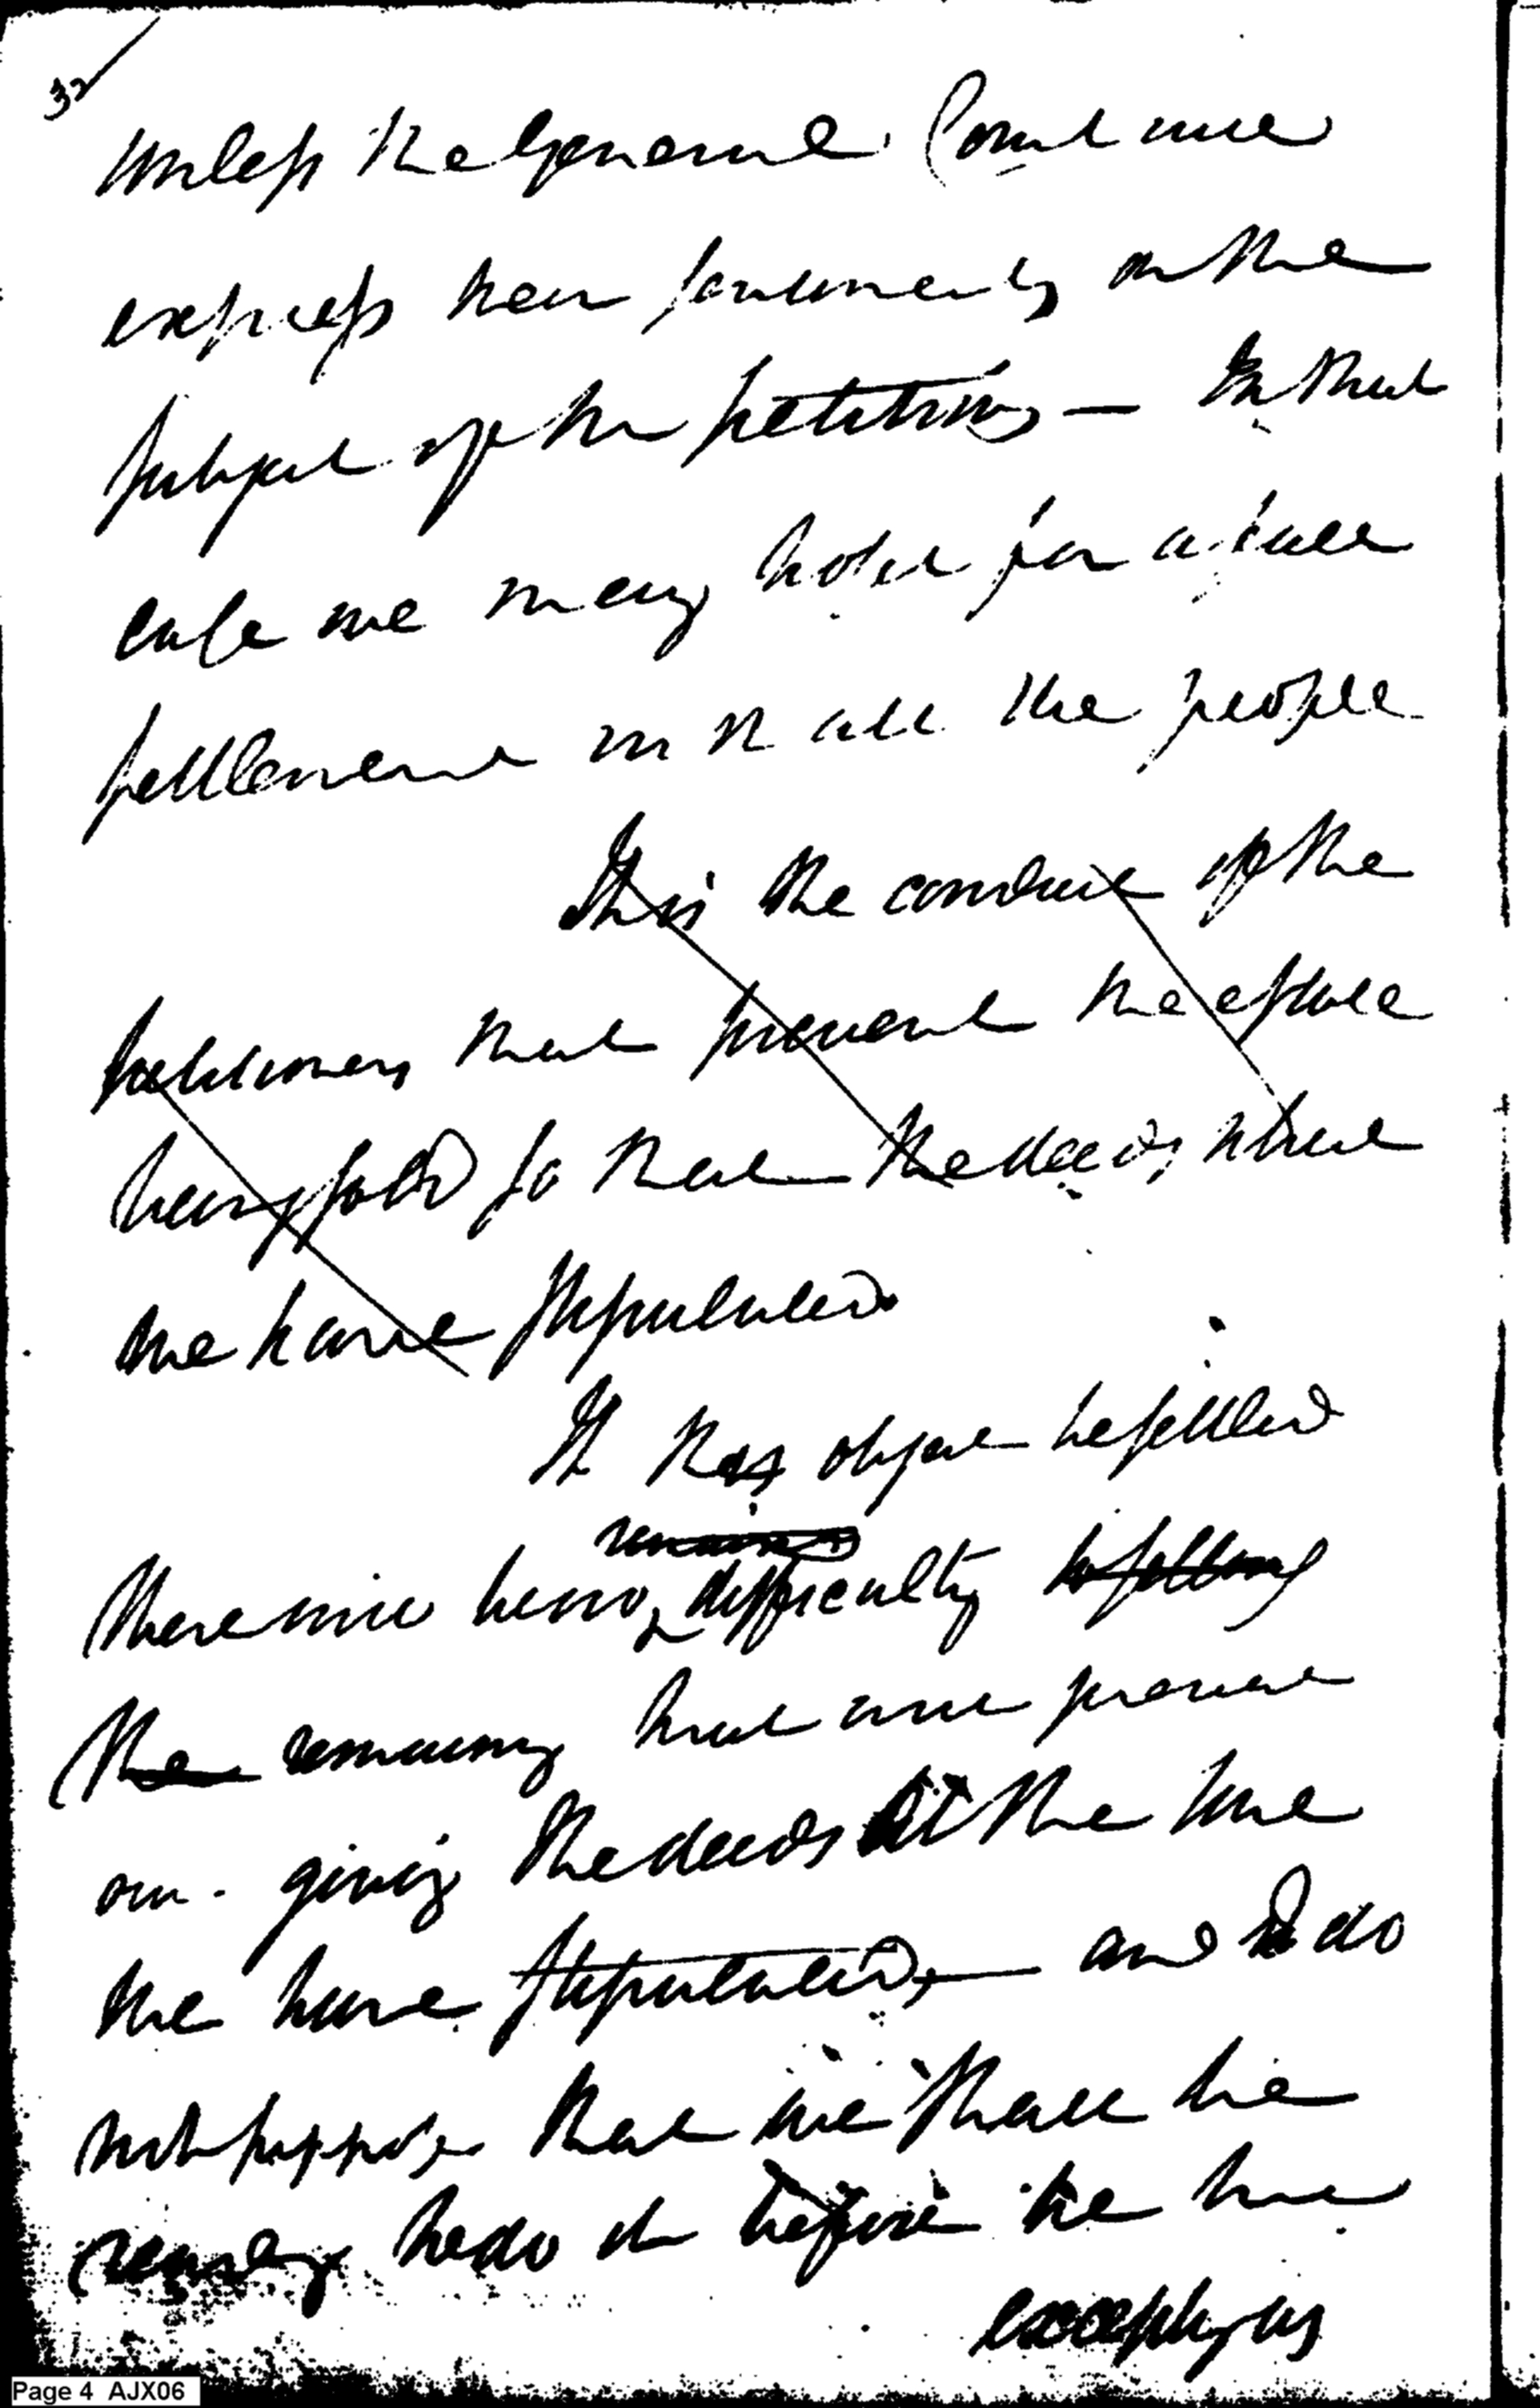 32
unless the General Court will
express their sentiments on the
subject of the petitions — In that
case we may hope for a
settlement with all the people
It is the conduct of the
petitioners that prevent the estate
being sold so that the deeds
we have stipulated
If this object be settled
there will be no difficulty
the remaining that will prevent
our giving the deeds at the time
we have stipulated, — and I do
not suppose that we shall be
ready to do it before the time
except
Page 4 AJX06